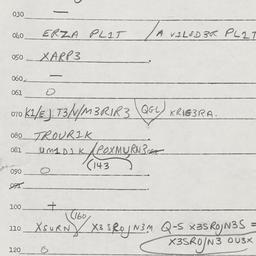 030 —
060 ERZA PL1T / A V1LOD3R PL1T
050 XARP3
060 —
061 0
070 K1/EJ T3/V/M3R1R3 QGL KR1G3RA.
080 TROUR1K
081 UM1D1K / POXMURN3
(143
090 0
095
100 +
(160)
110 XSURN / X3SROJN3M Q-S X3SROJN3S =
X3SROJN3 OU3X
120 0